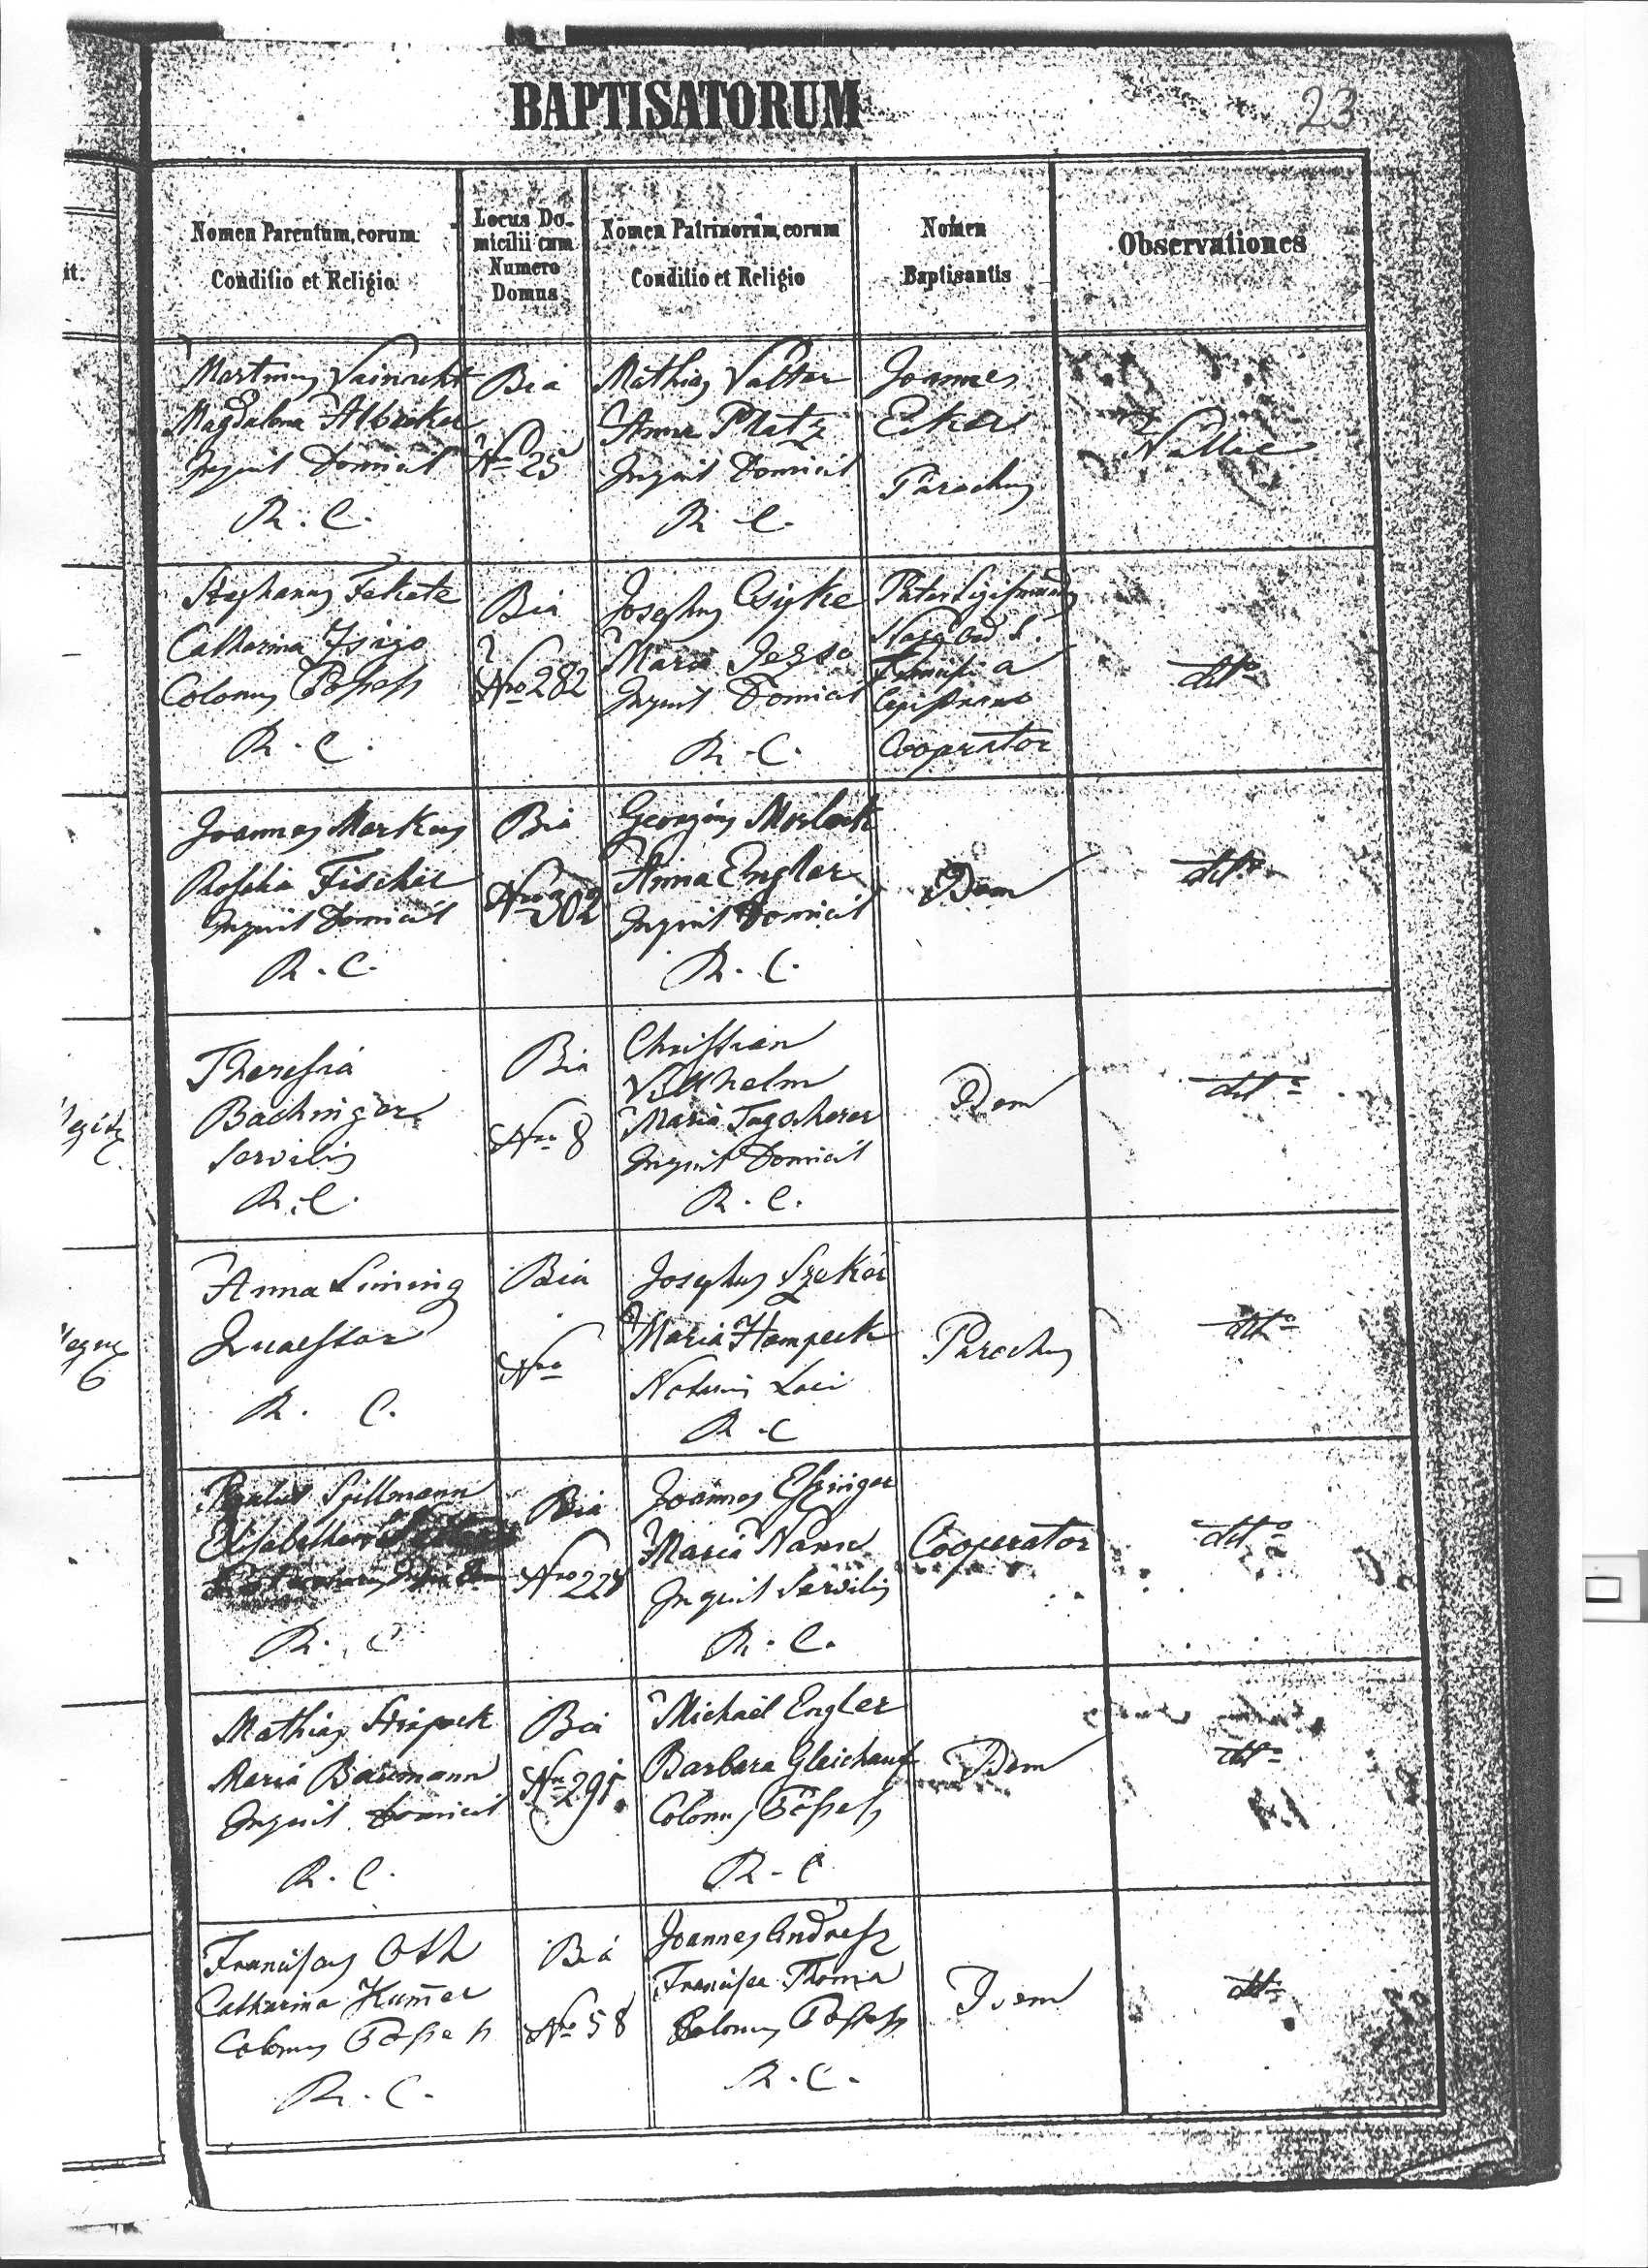 BAPTISATORUM
23
Nomen Parentum, eorum
Conditio et Religio
Locus Do-
micilii cum
Numero
Domus
Nomen Patrinorum, eorum
Conditio et Religio
Nomen
Baptisantis
Observationes
it.
Martinus Vainreht
Magdalena Albecker
Inquil Domicil
R. C.
Bia
Nro 25
Mathias Valter
Anna Platz
Inquil Domicil
R. C.
Joannes
Eker
Parochus
Nullae
Stephanus Fekete
Catharina
Colonus Possess
R. C.
Bia
Nro 282
Josephus Csipke
Maria
Inquil Domicil
R. C.
Pater Sigismundus
Ord S.
Francisci a
Capistrano
Cooperator
dtto
Joannes Markus
Rosalia Fischer
Inquil Domicil
R. C.
Bia
Nro 302
Georgius Morlock
Anna Engler
Inquil Domicil
R. C.
Idem
dtto
Theresia
Bachinger
Servilis
R. C.
Bia
Nro 8
Christian
Vilhelm
Maria Tagscherer
Inquil Domicil
R. C.
Idem
dtto
Anna Lining
Quaestor
R. C.
Bia
Nro
Josephus Szekér
Maria Hampeck
Notarius Loci
R. C
Parochus
dtto
6
Paulus Spillmann
Elisabetha
R. C.
Bia
Nro 228
Joannes Essinger
Maria Nann
Inquil Servilis
R. C.
Cooperator
dtto
Mathias
Maria Baumann
Inquil Domicil
R. C.
Bia
Nro 291
Michael Engler
Barbara Gleichauf
Colonus Possess
R. C
Idem
dtto
Franciscus Oth
Catharina Kum̄er
Colonus Possess
R. C.
Bia
Nro 58
Joannes Andresz
Francisca Thoma
Colonus Possess
R. C.
Idem
dtto